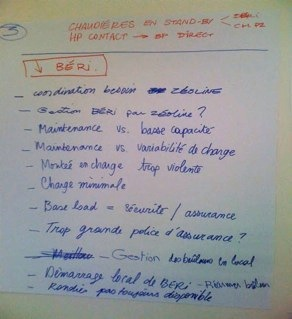 3 CHAUDIÈRES EN STAND-BY < BÉRI
HP CONTACT → BP DIRECT
↓ BÉRI.
- coordination besoin ZÉOLINE
- Gestion BÉRI par zéoline ?
- Maintenance vs. basse capacité
- Maintenance vs. variabilité de charge
- Montée en charge trop violente
- Charge minimale
- Base load = sécurité / assurance
- Trop grande police d'assurance ?
- Gestion des brûleurs en local
- Démarrage local de BERI
- Rondier pas toujours disponible